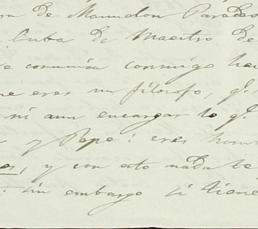 de Manuelon Paredes
Cuba de Maestro de
comunica conmigo
que eres un filosofo, q.
ni aun encargar te q.
y Pepe: eres hom
y con esto nada te
sin embargo si tiene